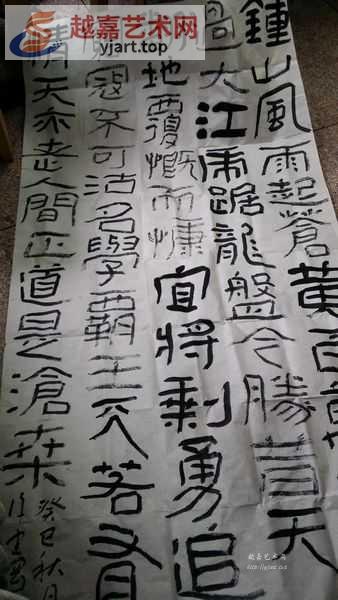 越嘉艺术网
yjart.top
鍾山風雨起蒼黄百
過大江虎踞龍盤今勝昔天
地覆慨而慷宜將剩勇追
寇不可沽名學霸王天若有
情天亦老人間正道是滄桑
癸巳秋月
越嘉艺术网